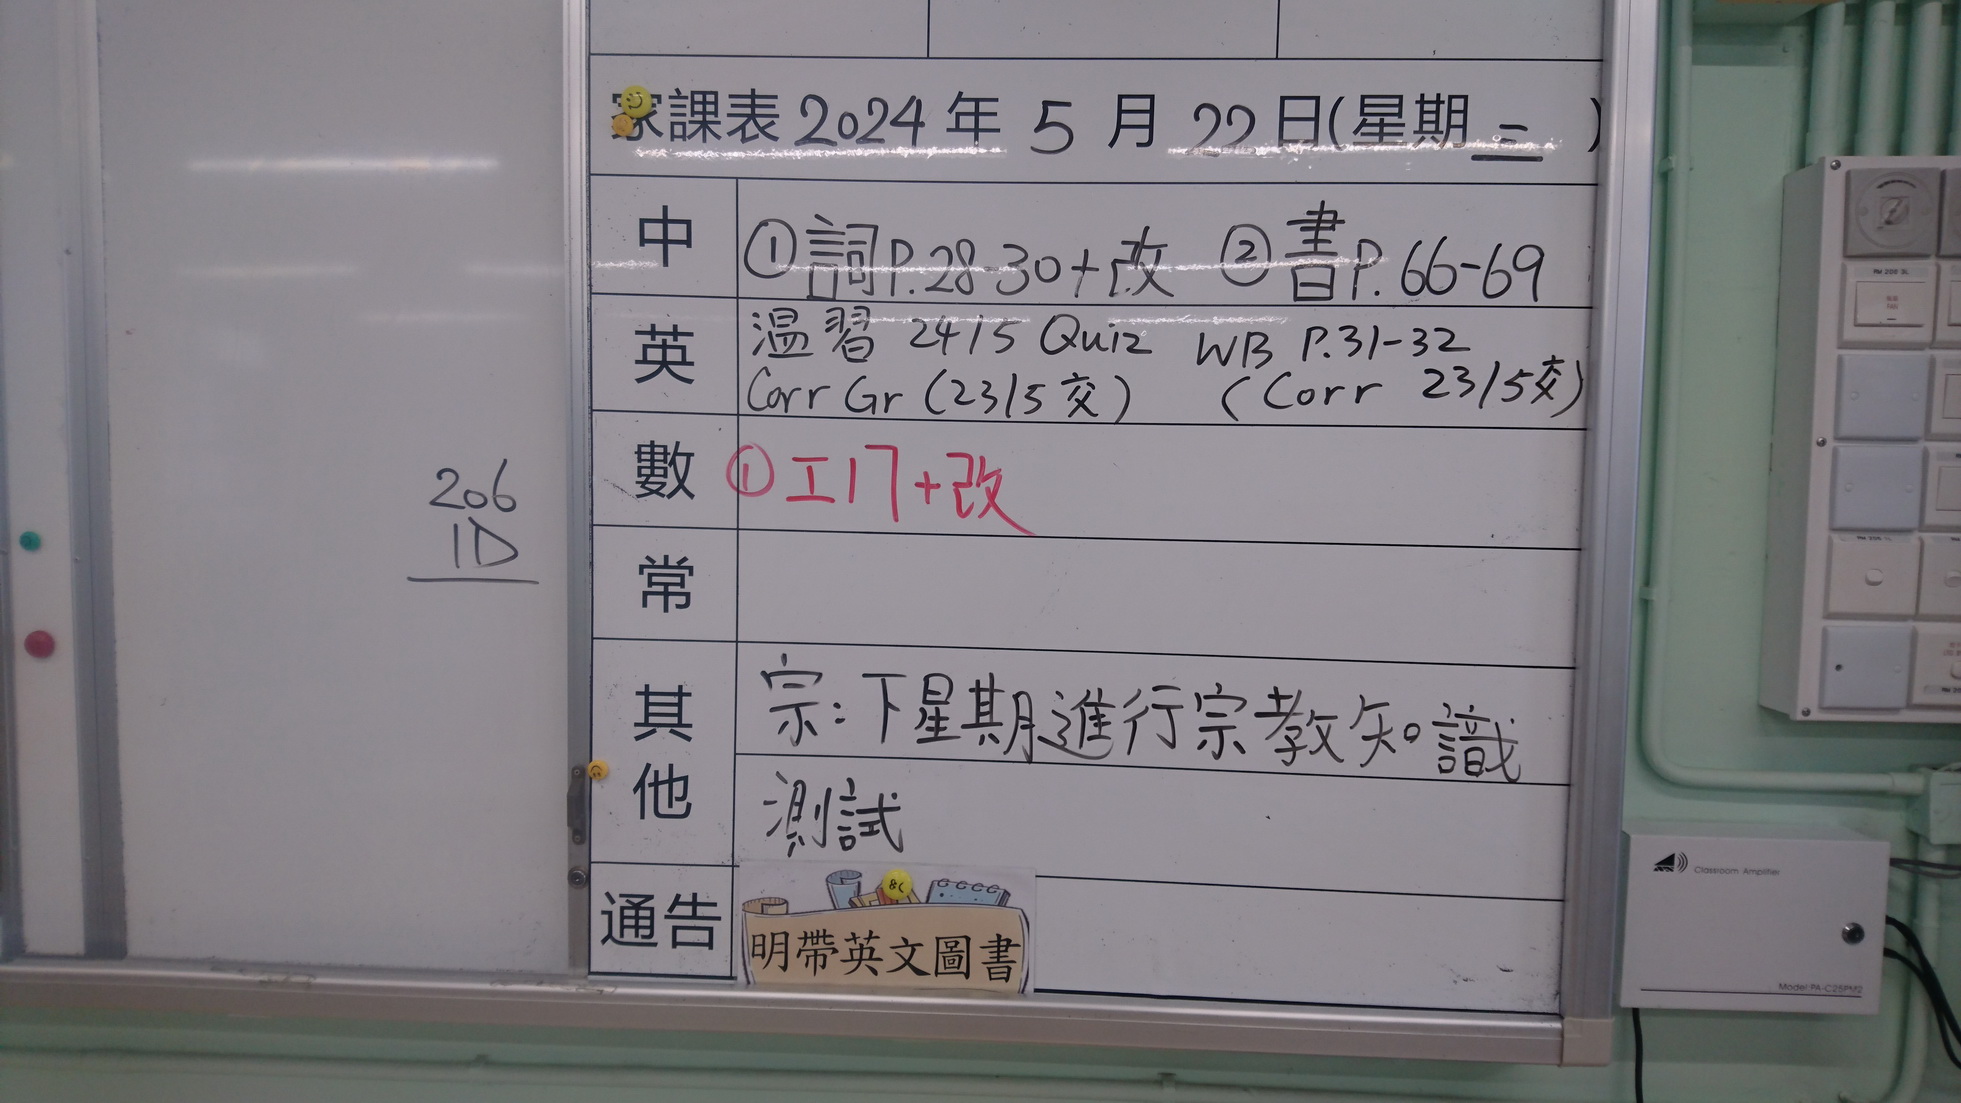 家課表 2024 年 5 月 22 日(星期 三 )
中 ①詞P.28-30+改 ②書P.66-69
英 温習 24/5 Quiz WB P.31-32
Corr Gr (23/5交) (Corr 23/5交)
數 ①工17+改
常
其他 宗:下星期進行宗教知識
測試
通告 明帶英文圖書
206
1D
Classroom Amplifier
Model: PA-C25PM2